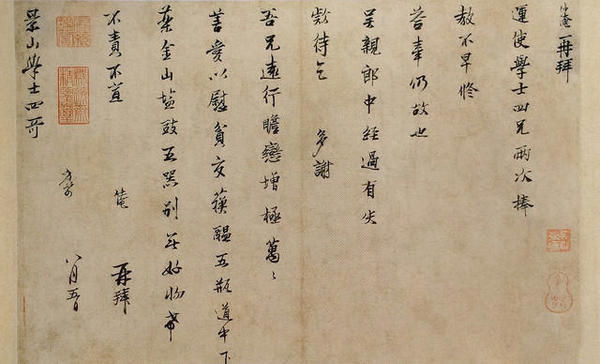 仲淹再拜
運使學士四兄兩次捧
教不早修
答牽仍故也
吳親郎中經過有失
款待乞 多謝
吾兄遠行瞻戀增極萬〻
善愛以慰貧交蘇醞五瓶道中下
藥金山鹽豉五器別無好物希
不責不宣 淹 再拜
八月五日
景山學士四哥